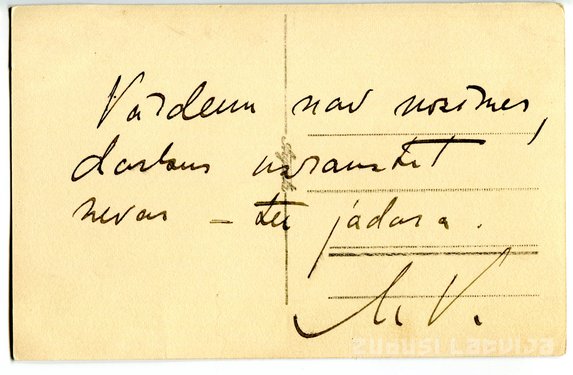 Vārdiem nav nozīmes,
darbus uzrakstīt
nevar – tie jādara.
M. V.
ZUDUSI LATVIJA